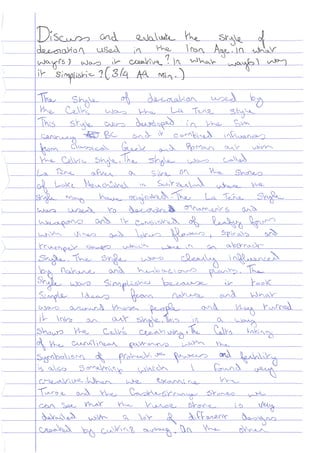 Discuss and evaluate the style of
decoration used in the Iron Age. In what
way(s) was it creative? In what way(s) was
it Simplistic? (3/4 A4 Min.)
The Style of decoration used by
the Celts was the La Tene Style
This Style was developed in the 5th
century BC and it combined influences
from classical Greek and Roman art with
the Celtic Style. The Style was called
La Tene after a site on the shores
of Lake Neuchatel in Switzerland where the
style may have originated. The La Tene Style
was used to decorate ornaments and
weapons and it consisted of leafy forms
with vines and lotus flowers, Spirals and
trumpet shapes which were in an abstract
Style. The Style was clearly influenced
by Nature and herbacious plants. The
Style was Simplistic because it took
Simple Ideas from nature and what
was around those people and they turned
it into an art Style. This in a way
shows the Celts creativity. The Celts linking
of the curvilinear patterns with the
Symbolism of protective powers and fertility
is also Something which I found very
creative. When we examine the
Turoe and the Castlestrange stones we
can see that the turoe stone is very
detailed with a lot of different designs
created by cutting away. On the other